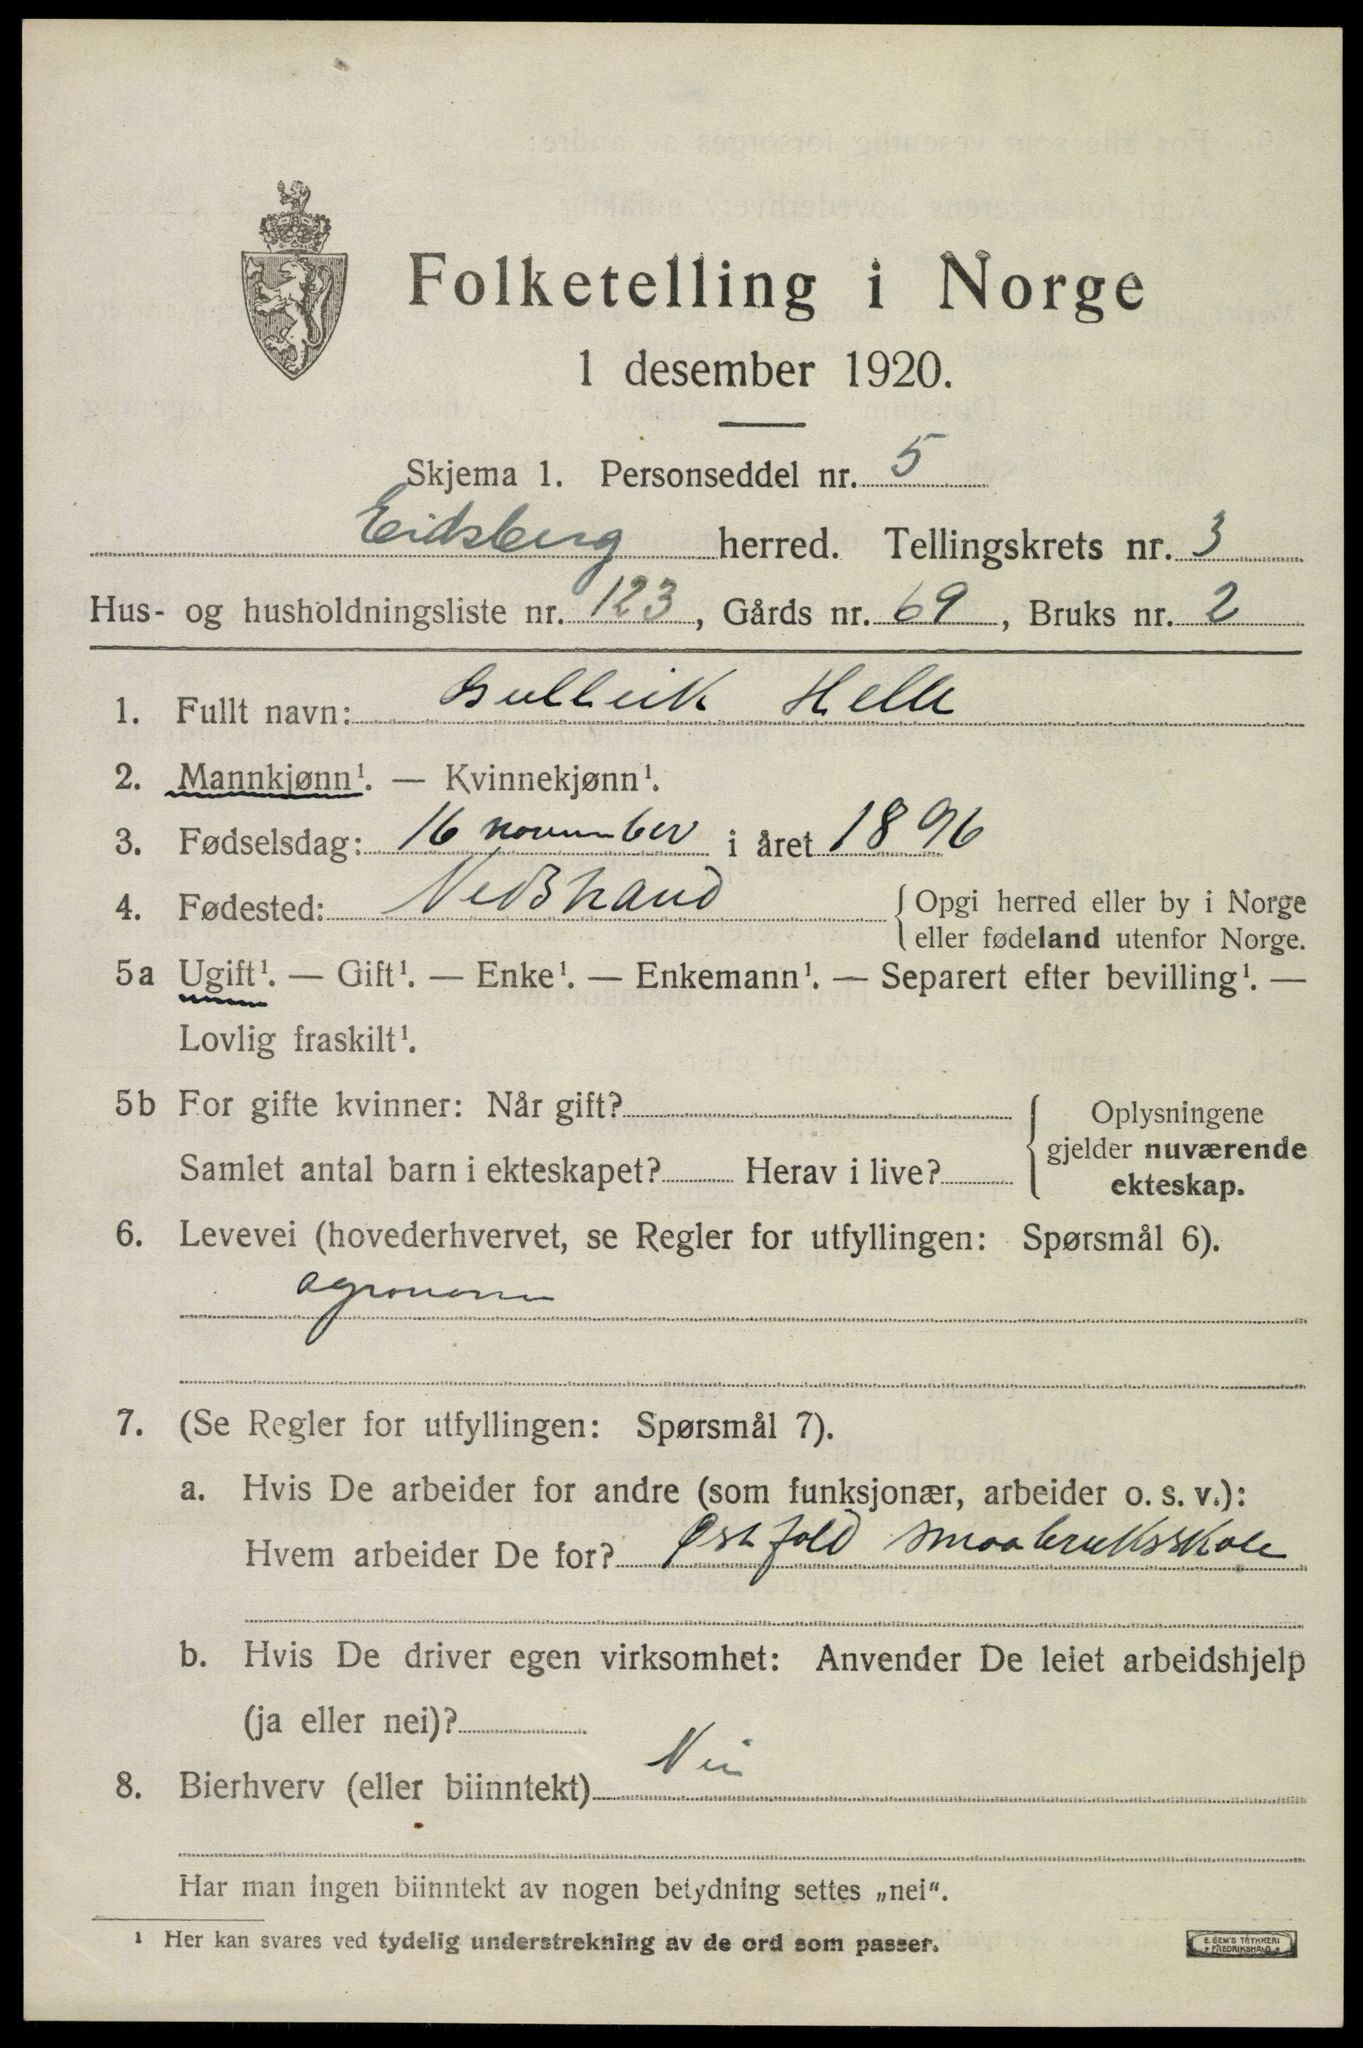 Folketelling i Norge
1 desember 1920.
Skjema 1. Personseddel nr. 5
Eidsberg herred. Tellingskrets nr. 3
Hus- og husholdningsliste nr. 123, Gårds nr. 69, Bruks nr. 2
1. Fullt navn: Gulleik Helle
2. Mannkjønn¹. — Kvinnekjønn¹.
3. Fødselsdag: 16 november i året 1896
4. Fødested: Nedstrand { Opgi herred eller by i Norge
eller fødeland utenfor Norge.
5a Ugift¹. — Gift¹. — Enke¹. — Enkemann¹. — Separert efter bevilling¹. —
Lovlig fraskilt¹.
5b For gifte kvinner: Når gift?
Samlet antal barn i ekteskapet? Herav i live?
{ Oplysningene
gjelder nuværende
ekteskap.
6. Levevei (hovederhvervet, se Regler for utfyllingen: Spørsmål 6).
agronom
7. (Se Regler for utfyllingen: Spørsmål 7).
a. Hvis De arbeider for andre (som funksjonær, arbeider o. s. v.):
Hvem arbeider De for? Østfold smaabruksskole
b. Hvis De driver egen virksomhet: Anvender De leiet arbeidshjelp
(ja eller nei)?
8. Bierhverv (eller biinntekt) Nei
Har man ingen biinntekt av nogen betydning settes „nei“.
¹ Her kan svares ved tydelig understrekning av de ord som passer.
E. SEM'S TRYKKERI
FREDRIKSHALD